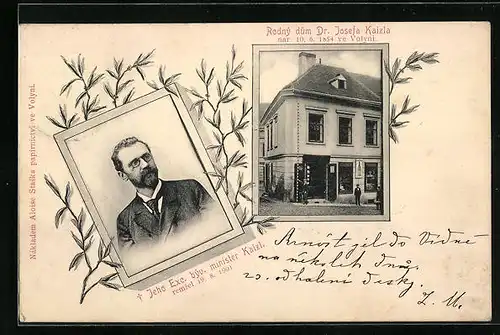 Rodný dům Dr. Josefa Kaizla
nar. 10. 6. 1854 ve Volyni.
Nákladem Aloise Staška papírnictví ve Volyni.
† Jeho Exc. býv. minister Kaizl.
zemřel 19. 8. 1901
Arnošt jel do Vídně
na několik dnů,
 odhalení desky.
Z. M.